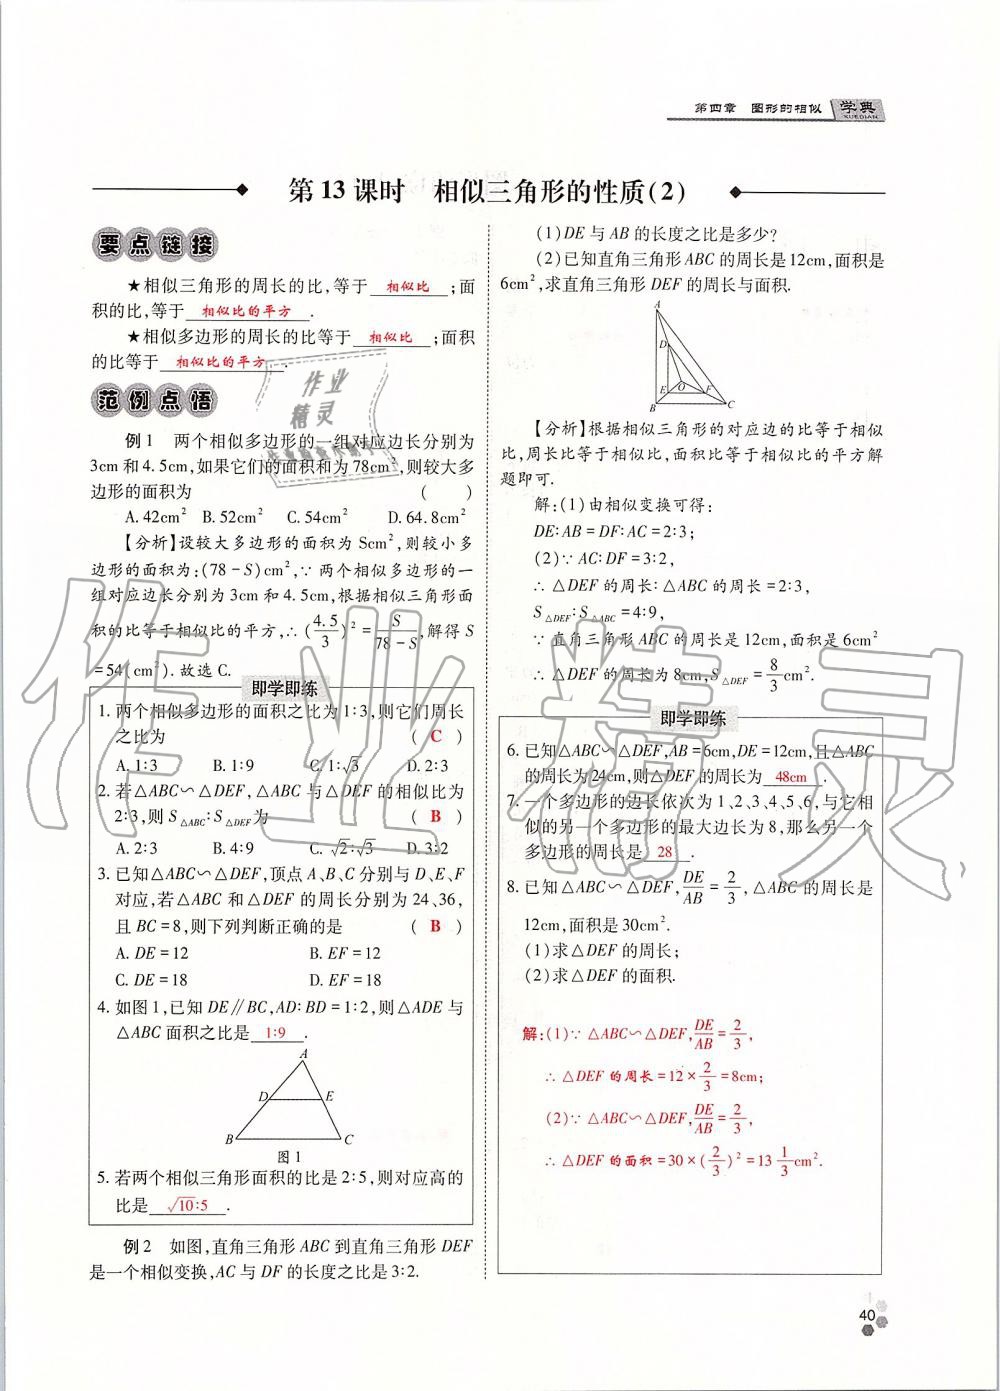 第四章 图形的相似 学典
XUEDIAN
第13课时 相似三角形的性质(2)
要点链接
★相似三角形的周长的比,等于 相似比 ;面
积的比,等于 相似比的平方 .
★相似多边形的周长的比等于 相似比 ;面积
的比等于 相似比的平方 .
范例点悟
例1 两个相似多边形的一组对应边长分别为
3cm和4.5cm,如果它们的面积和为78cm²,则较大多
边形的面积为 ( )
A.42cm² B.52cm² C.54cm² D.64.8cm²
【分析】设较大多边形的面积为Scm²,则较小多
边形的面积为:(78-S)cm²,∵两个相似多边形的一
组对应边长分别为3cm和4.5cm,根据相似三角形面
积的比等于相似比的平方,∴(4.5/3)²=S/(78-S),解得S
=54(cm²).故选C.
即学即练
1.两个相似多边形的面积之比为1∶3,则它们周长
之比为 ( C )
A.1∶3 B.1∶9 C.1∶√3 D.2∶3
2.若△ABC∽△DEF,△ABC与△DEF的相似比为
2∶3,则S△ABC∶S△DEF为 ( B )
A.2∶3 B.4∶9 C.√2∶√3 D.3∶2
3.已知△ABC∽△DEF,顶点A、B、C分别与D、E、F
对应,若△ABC和△DEF的周长分别为24、36,
且BC=8,则下列判断正确的是 ( B )
A.DE=12 B.EF=12
C.DE=18 D.EF=18
4.如图1,已知DE∥BC,AD∶BD=1∶2,则△ADE与
△ABC面积之比是 1∶9 .
A
D E
B C
图1
5.若两个相似三角形面积的比是2∶5,则对应高的
比是 √10∶5 .
例2 如图,直角三角形ABC到直角三角形DEF
是一个相似变换,AC与DF的长度之比是3∶2.
(1)DE与AB的长度之比是多少?
(2)已知直角三角形ABC的周长是12cm,面积是
6cm²,求直角三角形DEF的周长与面积.
A
D
O
E F
B C
【分析】根据相似三角形的对应边的比等于相似
比,周长比等于相似比,面积比等于相似比的平方解
题即可.
解:(1)由相似变换可得:
DE∶AB=DF∶AC=2∶3;
(2)∵AC∶DF=3∶2,
∴△DEF的周长∶△ABC的周长=2∶3,
S△DEF∶S△ABC=4∶9,
∵直角三角形ABC的周长是12cm,面积是6cm²
∴△DEF的周长为8cm,S△DEF=8/3cm².
即学即练
6.已知△ABC∽△DEF,AB=6cm,DE=12cm,且△ABC
的周长为24cm,则△DEF的周长为 48cm .
7.一个多边形的边长依次为1、2、3、4、5、6,与它相
似的另一个多边形的最大边长为8,那么另一个
多边形的周长是 28 .
8.已知△ABC∽△DEF,DE/AB=2/3,△ABC的周长是
12cm,面积是30cm².
(1)求△DEF的周长;
(2)求△DEF的面积.
解:(1)∵△ABC∽△DEF,DE/AB=2/3,
∴△DEF的周长=12×2/3=8cm;
(2)∵△ABC∽△DEF,DE/AB=2/3,
∴△DEF的面积=30×(2/3)²=13 1/3cm².
40
作业精灵
作业
精灵